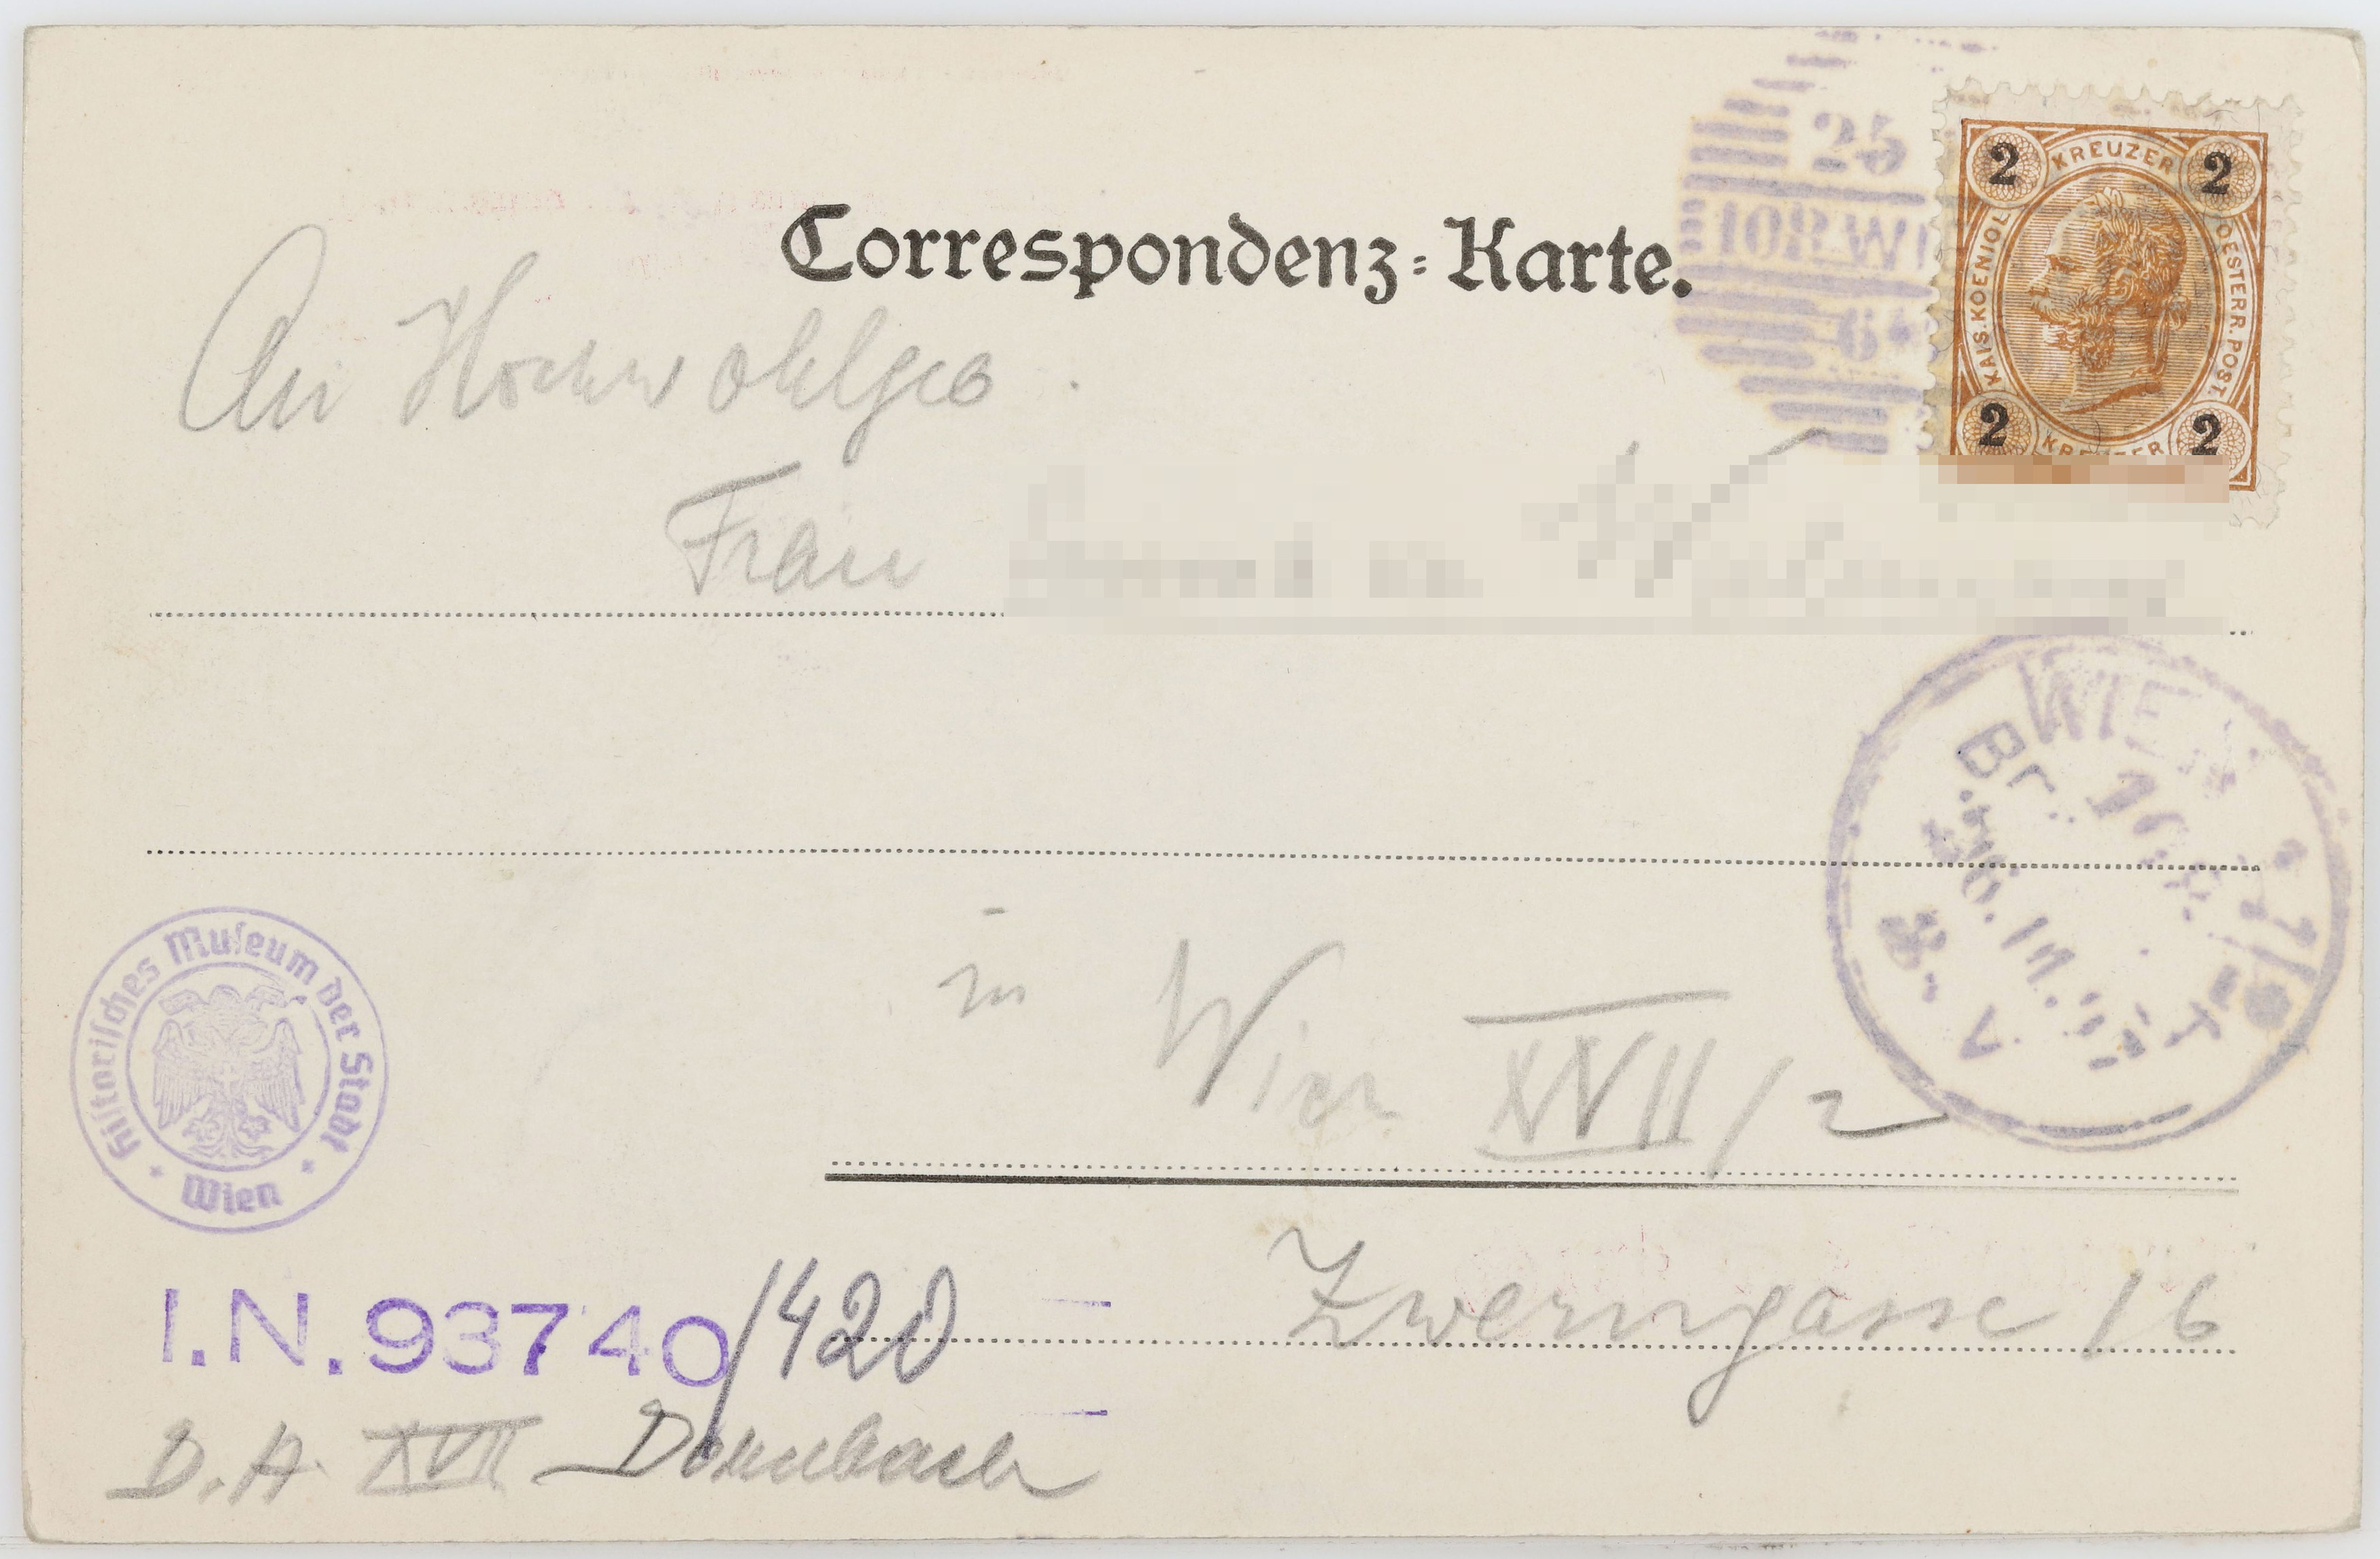 Correspondenz-Karte.
25
6
2 KREUZER 2
KAIS. KOENIGL. OESTERR. POST.
2 KREUZER 2
An Hochwohlgeb.
Frau
WIEN
Br.
V.
in Wien XVII/2
Historisches Museum der Stadt
Wien
Zwerngasse 16
I.N. 93740/420
D.A. XVII Dornbach